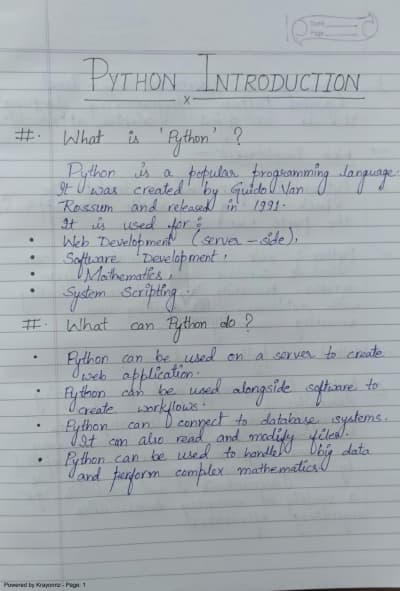 Date
Page
PYTHON INTRODUCTION
x
#. What is 'Python' ?
Python is a popular programming language.
It was created by Guido Van
Rossum and released in 1991.
It is used for :
• Web Development (server-side),
• Software Development,
• Mathematics,
• System Scripting.
#. What can Python do ?
• Python can be used on a server to create
web application.
• Python can be used alongside software to
create workflows.
• Python can connect to database systems.
It can also read and modify files.
• Python can be used to handle big data
and perform complex mathematics.
Powered by Krayonnz - Page: 1